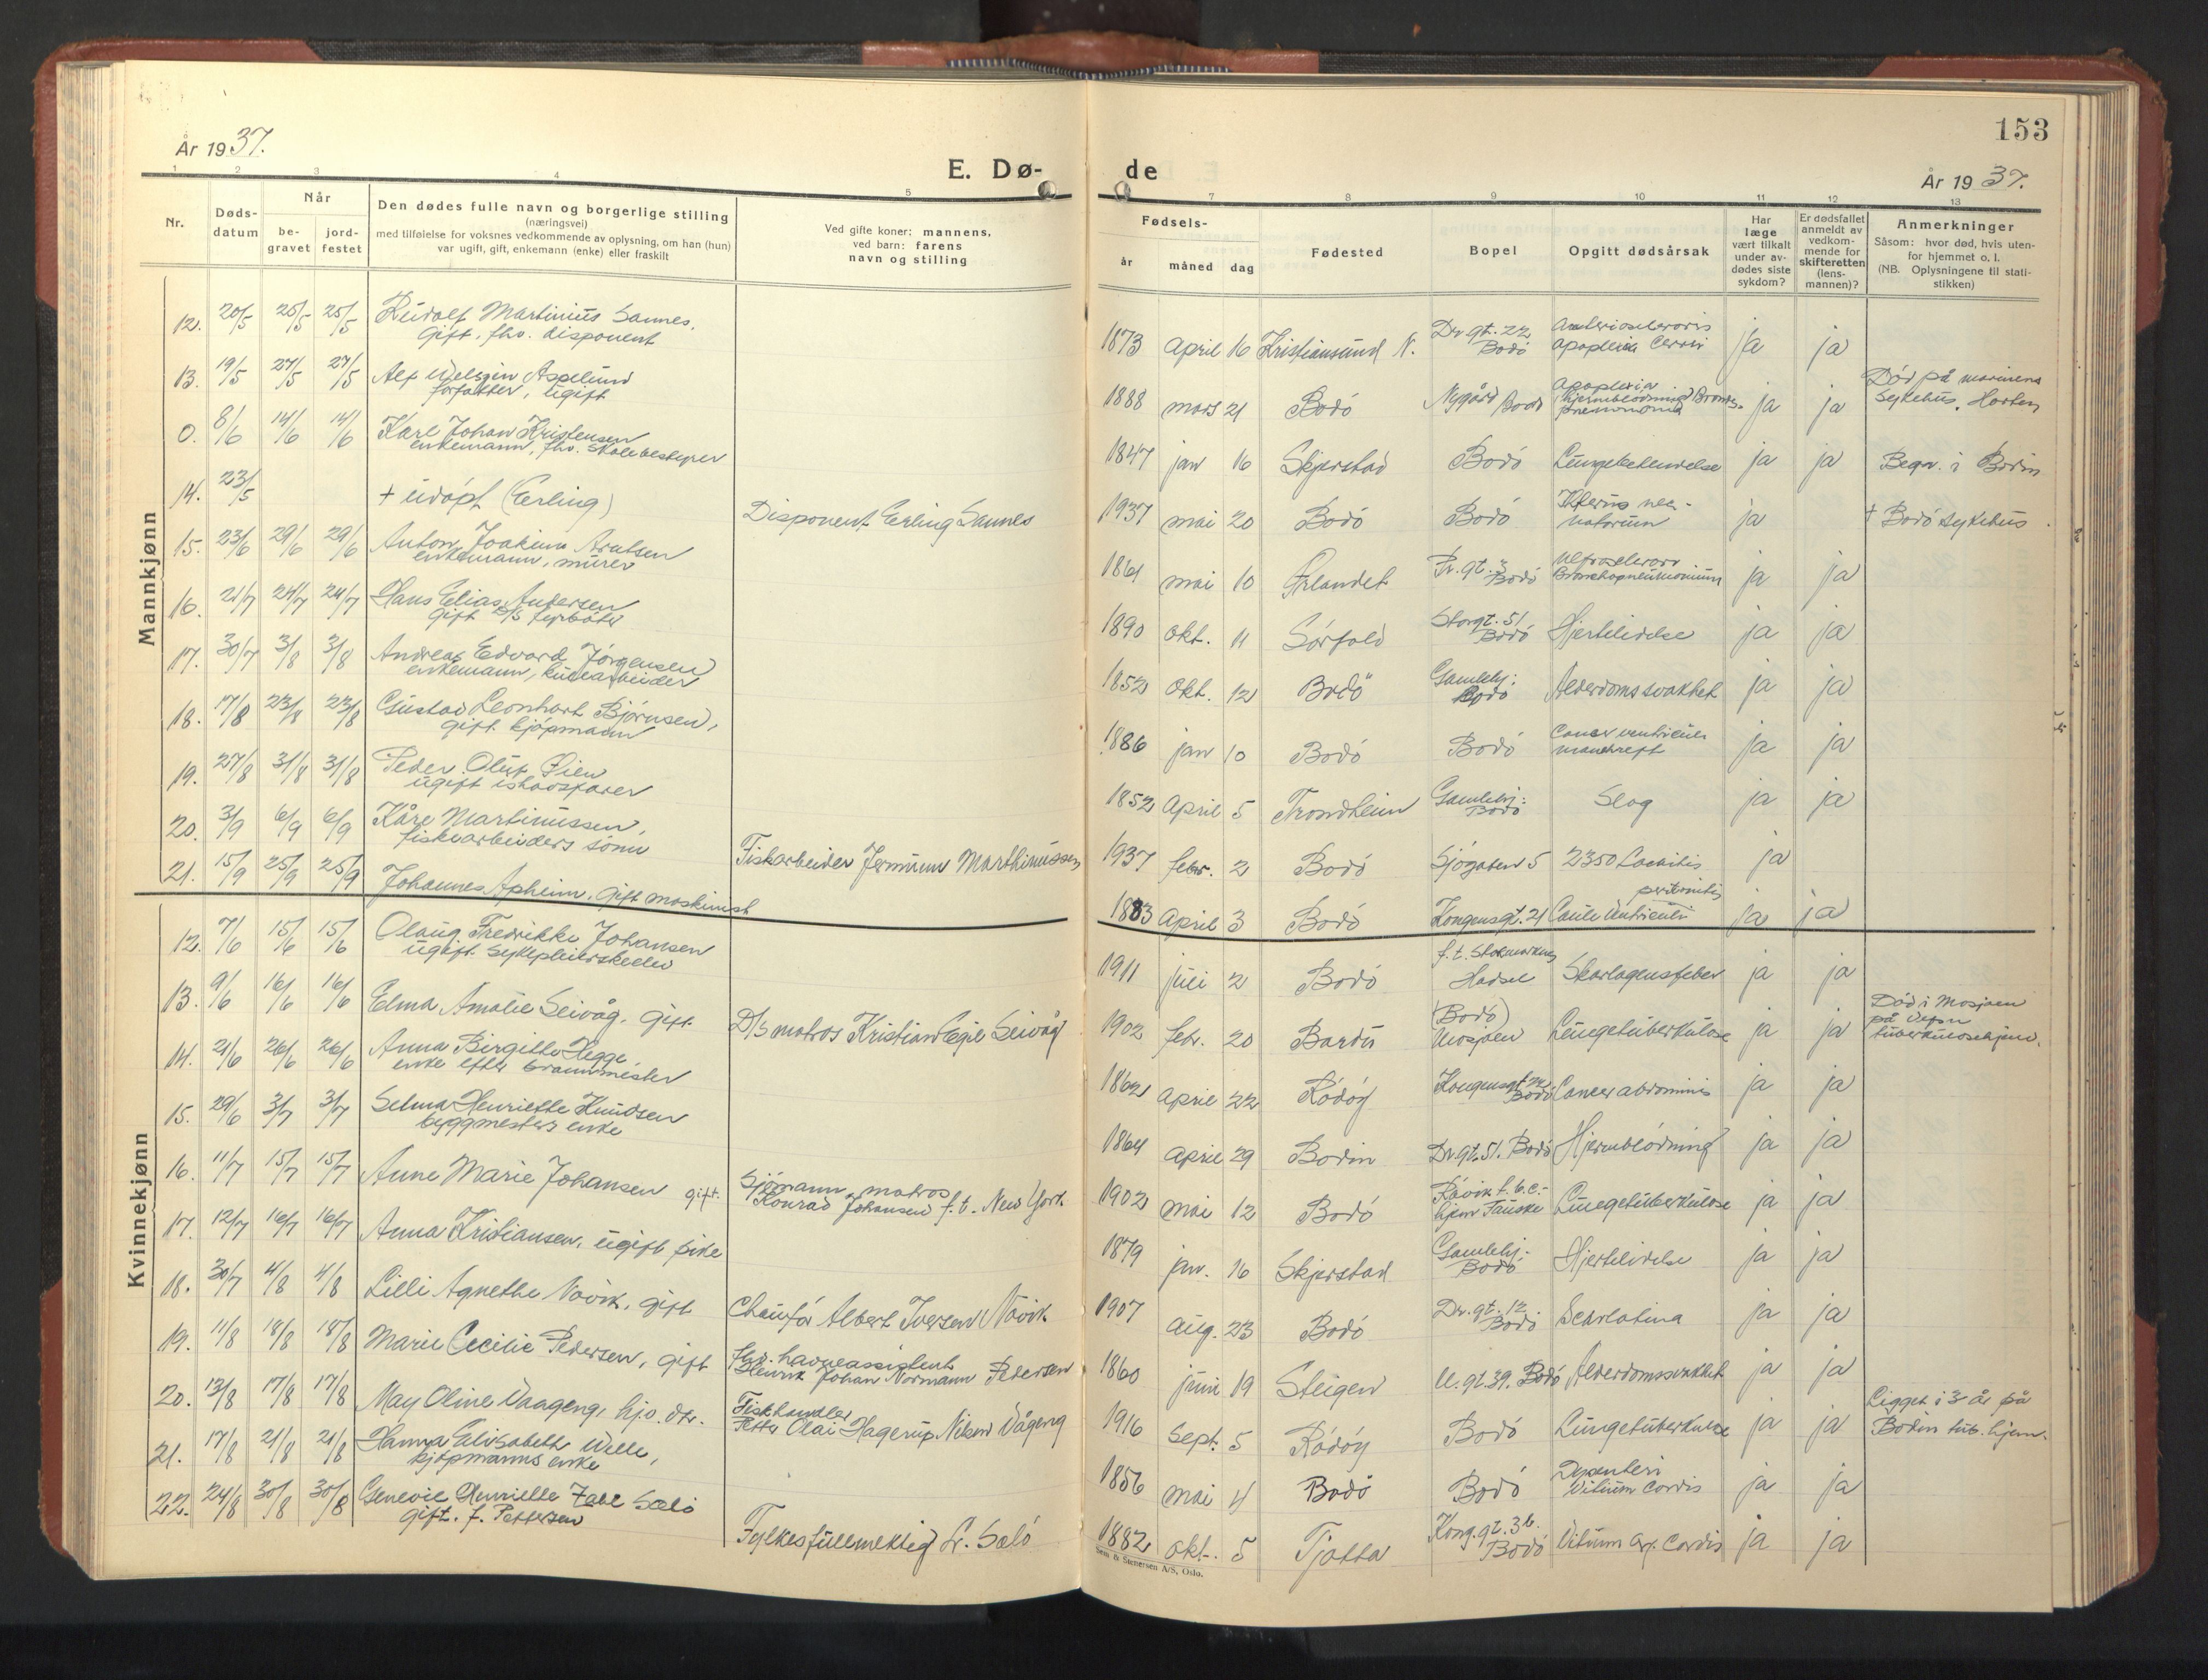 153
År 1937.
E. Dø-
de
År 1937.
1 2 3 4 5
7 8 9 10 11 12 13
Nr.
Døds-
datum
Når
be-
gravet
jord-
festet
Den dødes fulle navn og borgerlige stilling
(næringsvei)
med tilføielse for voksnes vedkommende av oplysning, om han (hun)
var ugift, gift, enkemann (enke) eller fraskilt
Ved gifte koner: mannens,
ved barn: farens
navn og stilling
Fødsels-
år måned dag
Fødested
Bopel
Opgitt dødsårsak
Har
læge
vært tilkalt
under av-
dødes siste
sykdom?
Er dødsfallet
anmeldt av
vedkom-
mende for
skifteretten
(lens-
mannen)?
Anmerkninger
Såsom: hvor død, hvis uten-
for hjemmet o. l.
(NB. Oplysningene til stati-
stikken)
Mannkjønn
12. 20/5 25/5 25/5 Rudolf Martinius Sannes,
gift, fhv. disponent
1873 april 16 Kristiansund N. Dr. gt. 22 Bodó
apoplexia ja ja
13. 19/5 27/5 27/5 Alf Aspelund
forfatter, ugift
1888 mars 21 Bodó Nygård Bodó Apoplexia
(hjerneblødning) ja ja
Død på marinens
Sykehus, Horten
0. 8/6 14/6 14/6 Karl Johan Kristensen
enkemann, fhv. skolebestyrer
1847 jan 16 Skjerstad Bodó Lungebetendelse ja ja Begr. i Bodin
14. 23/5 + udópt (Erling) Disponent Erling Sannes
1937 mai 20 Bodó Bodó Ikterus neo-
natorum ja + Bodó sykehus
15. 23/6 29/6 29/6 Anton Joakim Arntsen
enkemann, murer
1861 mai 10 Ørlandet Pr. gt. 3 Bodó
Bronchopneumonium ja ja
16. 21/7 24/7 24/7 Hans Elias Andersen
gift D/S fyrbóter
1890 okt. 11 Sórfold Storgt. 51 Bodó Hjertelidelse ja ja
17. 30/7 3/8 3/8 Andreas Edvard Jørgensen
enkemann,
1852 okt. 12 Bodó Gamlehj. Bodó Alderdomssvakhet ja ja
18. 17/8 23/8 23/8 Gustav Leonhart Bjørnsen,
gift kjópmann
1886 jan 10 Bodó Bodó Cancer ventriculi
ja ja
19. 27/8 31/8 31/8 Peder Oluf Øien
ugift ishavsfarer
1852 April 5 Trondheim Gamlehj. Bodó Slag ja ja
20. 3/9 6/9 6/9 Kåre Martinussen,
fiskearbeiders sónn
Fiskarbeider Jermunn Marthinussen
1937 febr. 2 Bodó Sjógaten 5 ja
21. 15/9 25/9 25/9 Johannes Apheim, gift maskinist
1883 April 3 Bodó Kongensgt. 21 peritonitis ja ja
Kvinnekjønn
12. 7/6 15/6 15/6 Olaug Fredrikke Johansen
ugift. sykepleierskeelev
1911 juli 2 Bodó f. t. Stokmarknes
Hadsel Skarlagensfeber ja ja
13. 9/6 16/6 16/6 Elma Amalie Seivåg, gift
D/S matros Kristian Egil Seivåg
1902 febr. 20 Bardu (Bodó)
Mosjøen Lungetuberkulose ja ja
Død i Mosjøen
på Vefsn
tuberkulosehjem.
14. 21/6 26/6 26/6 Anna Birgitte Hegge
enke efter brannmester
1862 April 22 Ródóy Kongensgt. Bodó Cancer abdominis ja ja
15. 29/6 3/7 3/7 Selma Henriette Knudsen
byggmesters enke
1864 April 29 Bodin Dr. gt. 51. Bodó Hjerneblódning ja ja
16. 11/7 15/7 15/7 Anne Marie Johansen gift.
Sjómann, matros
Konrad Johansen f. t. New York.
1902 mai 12 Bodó Råvik t.b.c.-
hjem Fauske Lungetuberkulose ja ja
17. 12/7 16/7 16/7 Anna Kristiansen, ugift pike
1879 jan. 16 Skjerstad Gamlehj.- Bodó Hjertelidelse ja ja
18. 30/7 4/8 4/8 Lilli Agnethe Növik, gift
Chaufór Albert Iversen Növik
1907 aug. 23 Bodó Dr. gt. 12 Bodó Scarlatina ja ja
19. 11/8 18/8 18/8 Marie Cecilie Pedersen, gift
fhv. havneassistent
Henrik Johan Normann Pedersen
1860 juni 19 Steigen gt. 39. Bodó Alderdomssvakhet ja ja
20. 13/8 17/8 17/8 May Oline Vaageng, hjv. dtr.
Fiskhandler
Petter Olai Hagerup Vågeng
1916 Sept. 5 Ródóy Bodó Lungetuberkulose ja ja
Ligget i 3 år på
Bodin tub. hjem.
21. 17/8 21/8 21/8 Hanna Elisabeth Welle,
kjópmanns enke
1856 mai 4 Bodó Bodó Dysenteri
Vitium cordis ja ja
22. 24/8 30/8 30/8 Genevie Henriette Zahl Saló
gift. f. Pettersen
Fylkesfullmektig Saló
1882 okt. 5 Tjøtta Kong. gt. 36. Bodó Vitium org. Cordis ja ja
Sem & Stenersen A/S, Oslo.